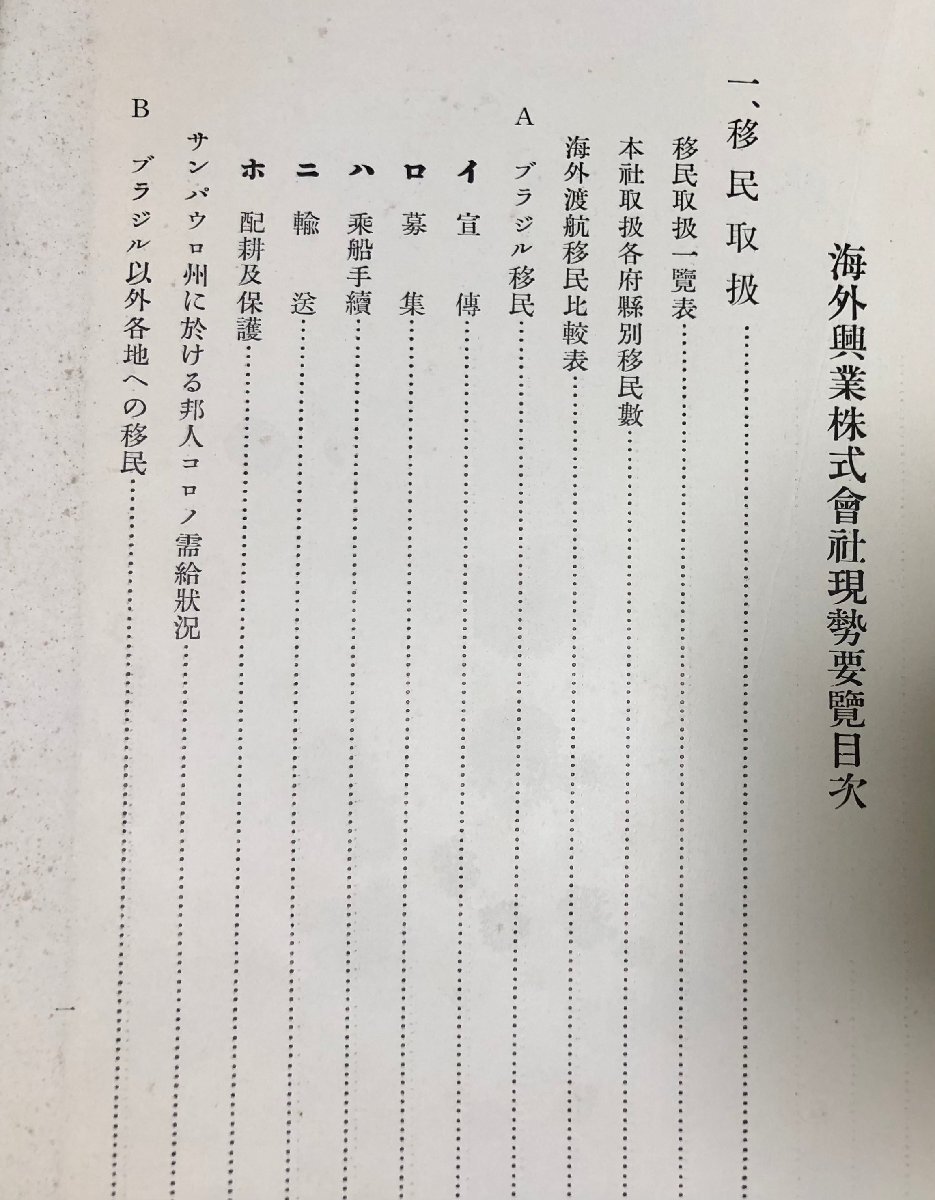 海外興業株式會社現勢要覽目次
一、移民取扱
移民取扱一覽表
本社取扱各府縣別移民數
海外渡航移民比較表
A ブラジル移民
イ 宣傳
ロ 募集
ハ 乘船手續
ニ 輸送
ホ 配耕及保護
サンパウロ州に於ける邦人コロノ需給狀況
B ブラジル以外各地への移民
一